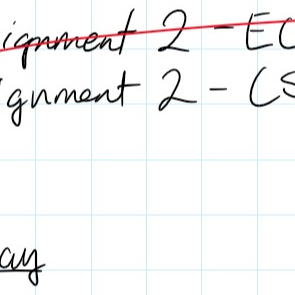 ignment 2 - EC
gnment 2 - CS
ay